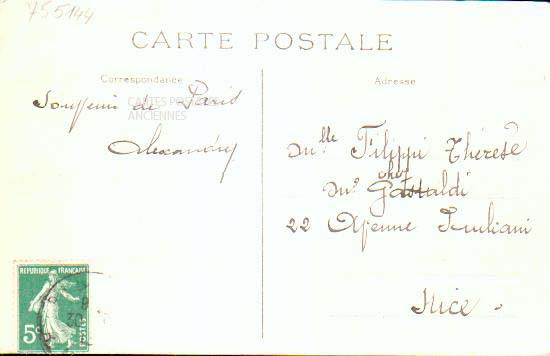 755144
CARTE POSTALE
Correspondance
Adresse
CARTES POSTALES
ANCIENNES
Souvenir de Paris
Alexandry
Mlle Filippi Thérèse
chez
Mo Gastaldi
22 Avenue Giuliani
Nice
REPUBLIQUE FRANÇAISE
5c
POSTES